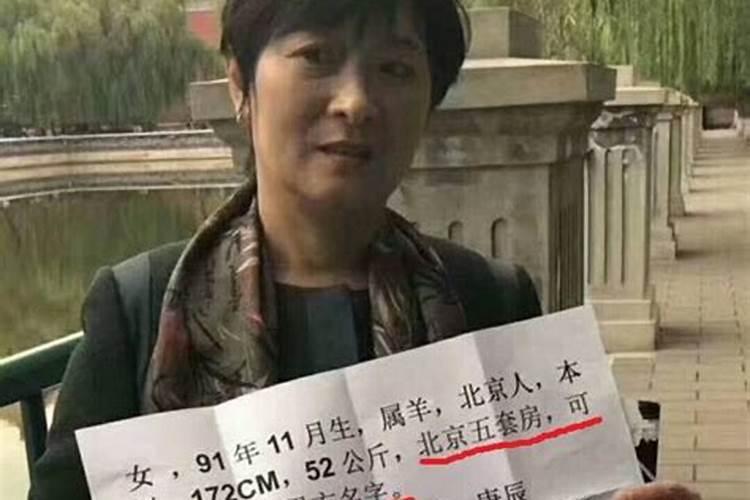 女，91年11月生，属羊，北京人，本
172CM，52公斤，北京五套房，可
方名字。 庚辰